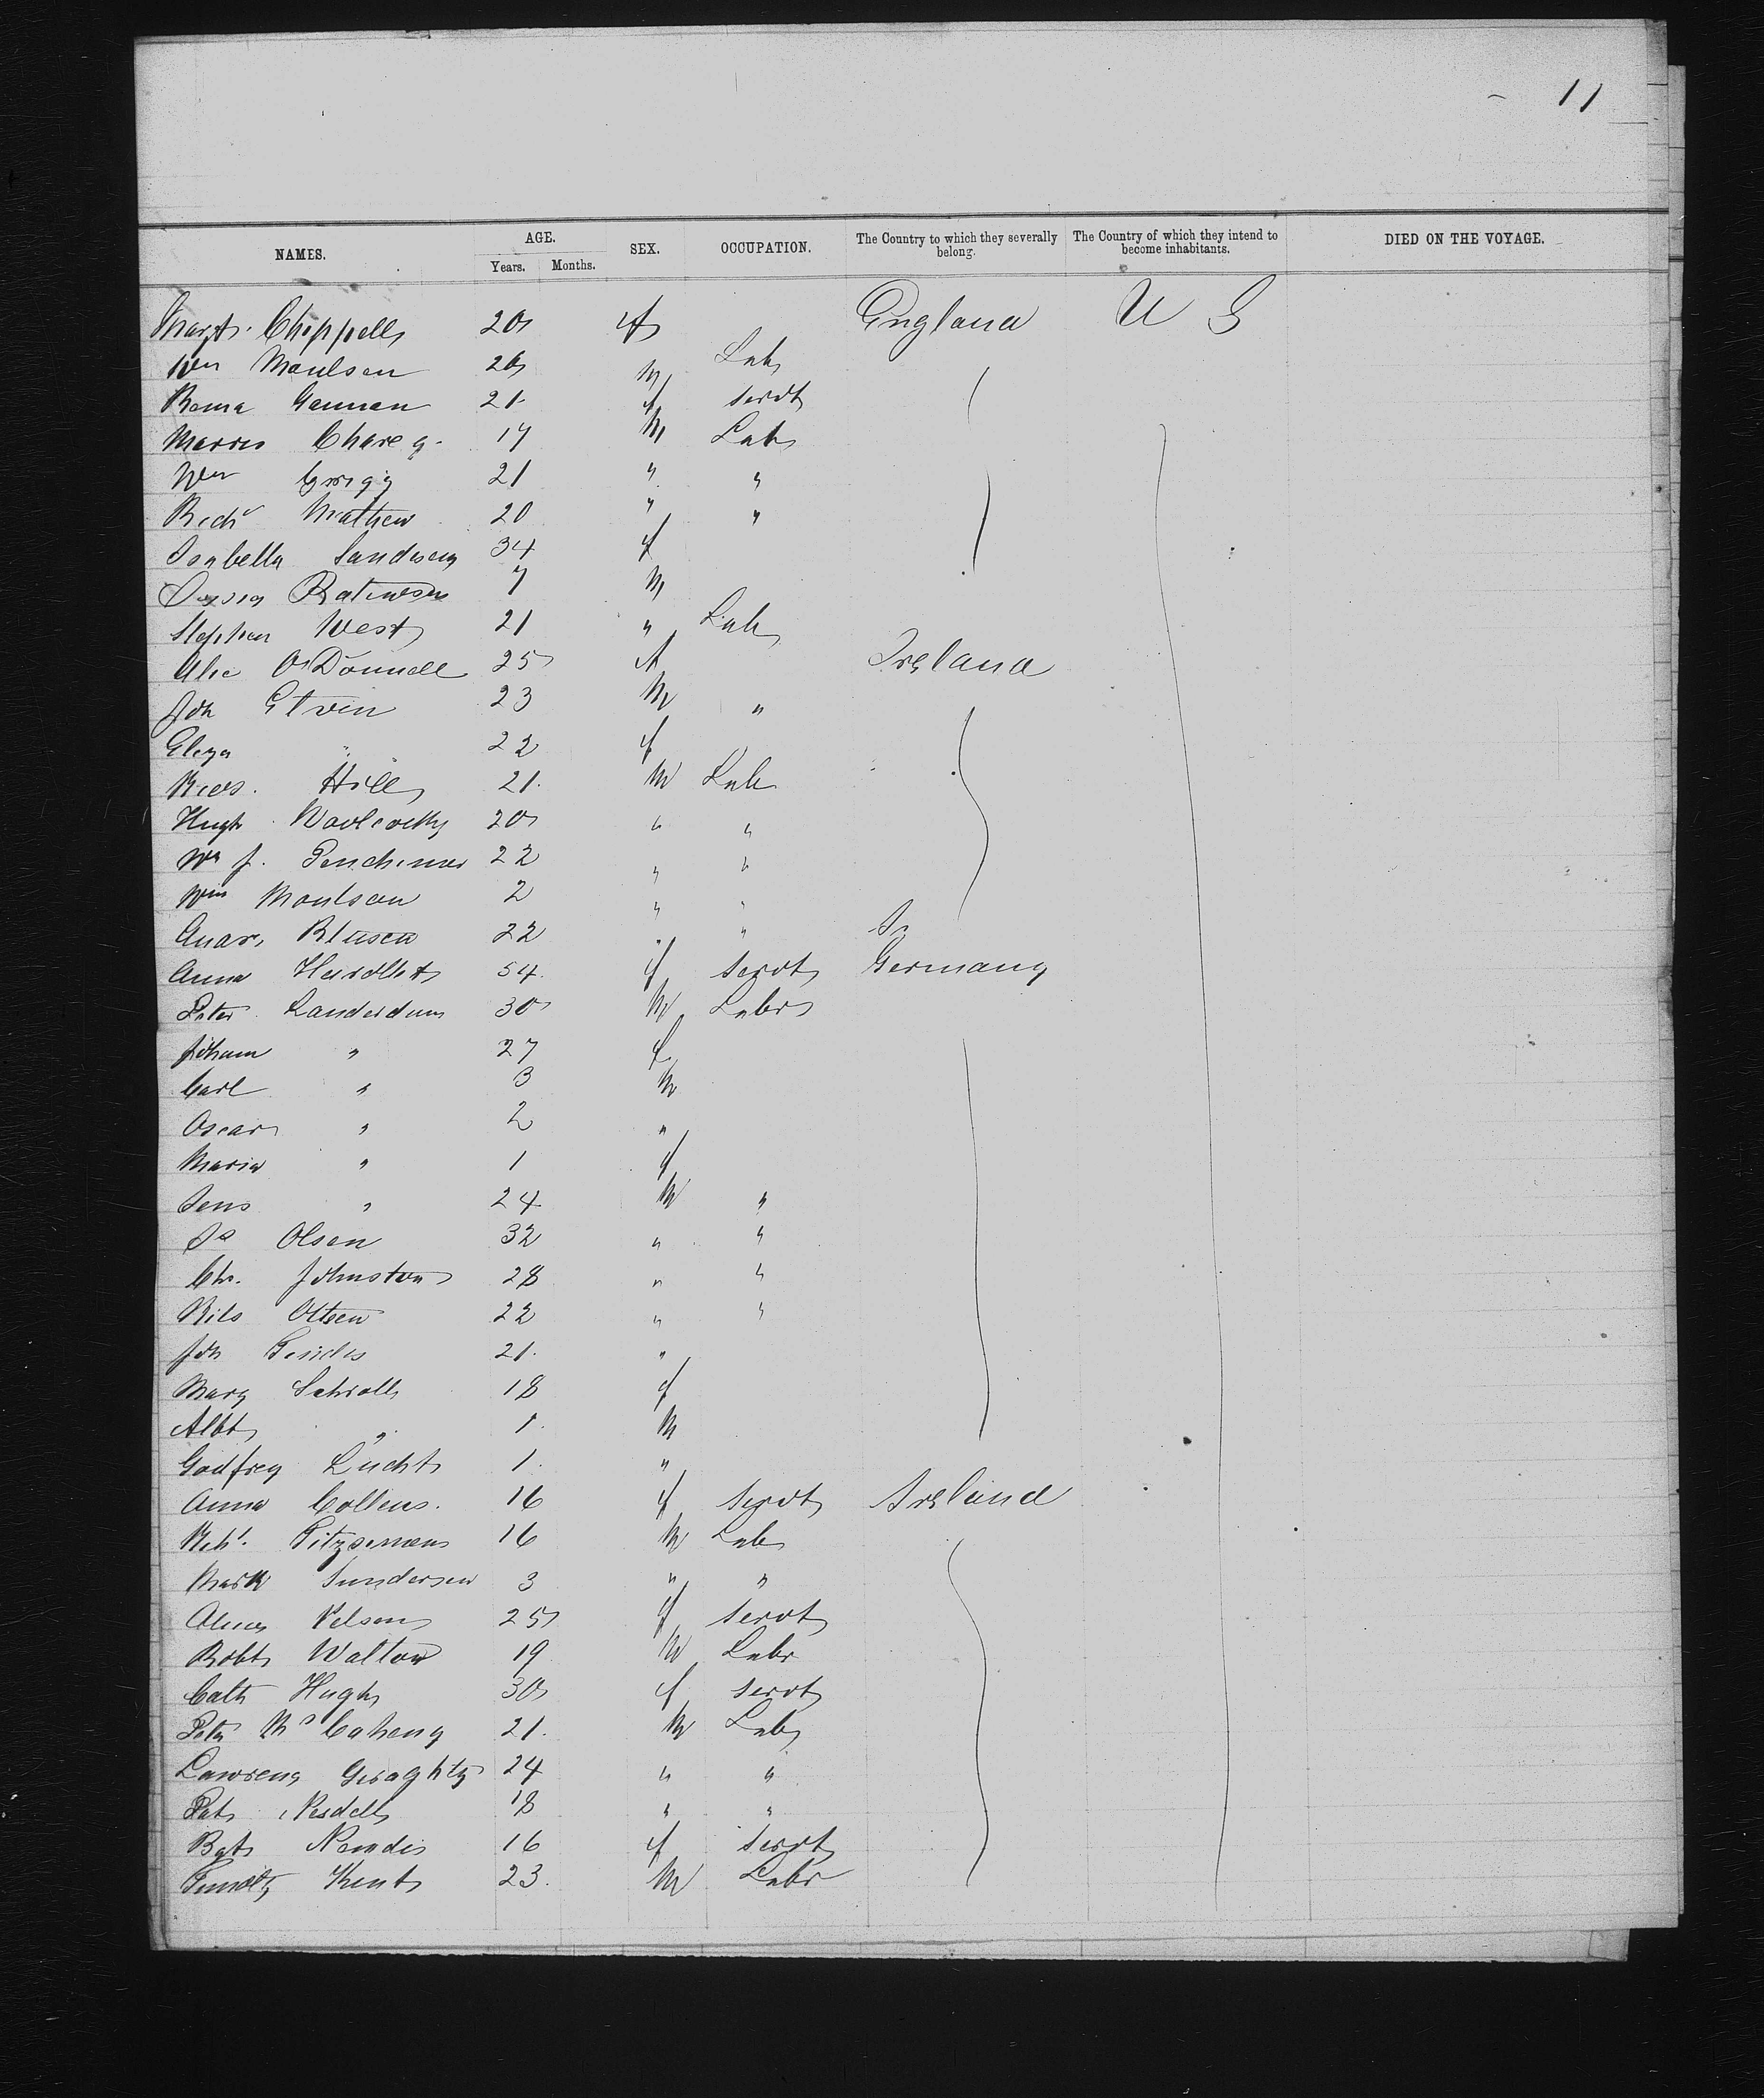 11
NAMES. AGE. Years. Months. SEX. OCCUPATION. The Country to which they severally belong. The Country of which they intend to become inhabitants. DIED ON THE VOYAGE.
Margt. Chappell 20 f England U S
Wm Moulson 20 m Lab
Gannan 21 f servt
Morris 17 M Lab
Wm Grigg 21 " "
Richd Mathew 20 " "
Isabella Sandison 34 f
7 M
Stephen West 21 " Lab
Alic O'Donnell 25 f Ireland
Joh Elvin 23 M "
Eliza " 22 f
Hill 21 M Lab
Hugh 20 " "
Wm J. 22 " "
Wm Moulson 2 " "
22 " "
Anna 54 f servt Germany
Peter Landerdum 30 M Labr
Joham " 27 f
Carl " 3 M
Oscar " 2 "
Maria " 1 f
Jens " 24 M "
Js Olsen 32 " "
Chr. Johnston 28 " "
Nils Olsen 22 " "
Joh 21 "
Mary Schroll 18 f
Albt " 1 M
Godfrey Lucht 1 "
Anna Collens. 16 f servt Ireland
Fitzsimons 16 M Lab
Mark Sanderson 3 " "
Nelson 25 f servt
Robt Walton 19 M Labr
Cath Hugh 30 f servt
Peter McCaheny 21 M Lab
Lawrenc Geraghty 24 " "
Pat 18 " "
Bgt 16 f servt
Timoty Kent 23 M Labr